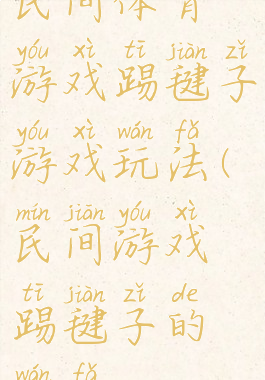 民间体育
yóu xì tī jiàn zǐ
游戏踢毽子
yóu xì wán fǎ
游戏玩法(
mín jiān yóu xì
民间游戏
tī jiàn zǐ de
踢毽子的
wán fǎ